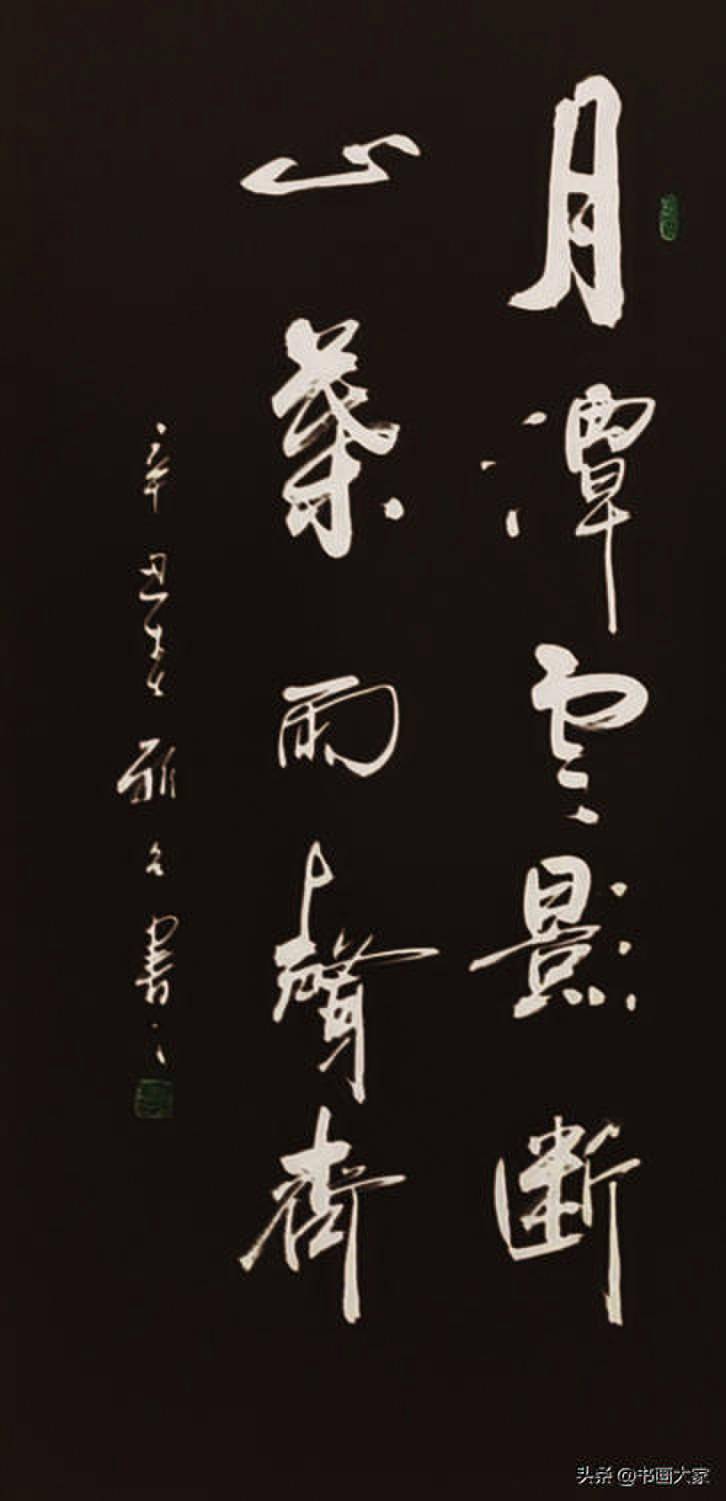 月潭雲影斷
山葉雨聲齊
辛丑 雅 書
头条 @书画大家